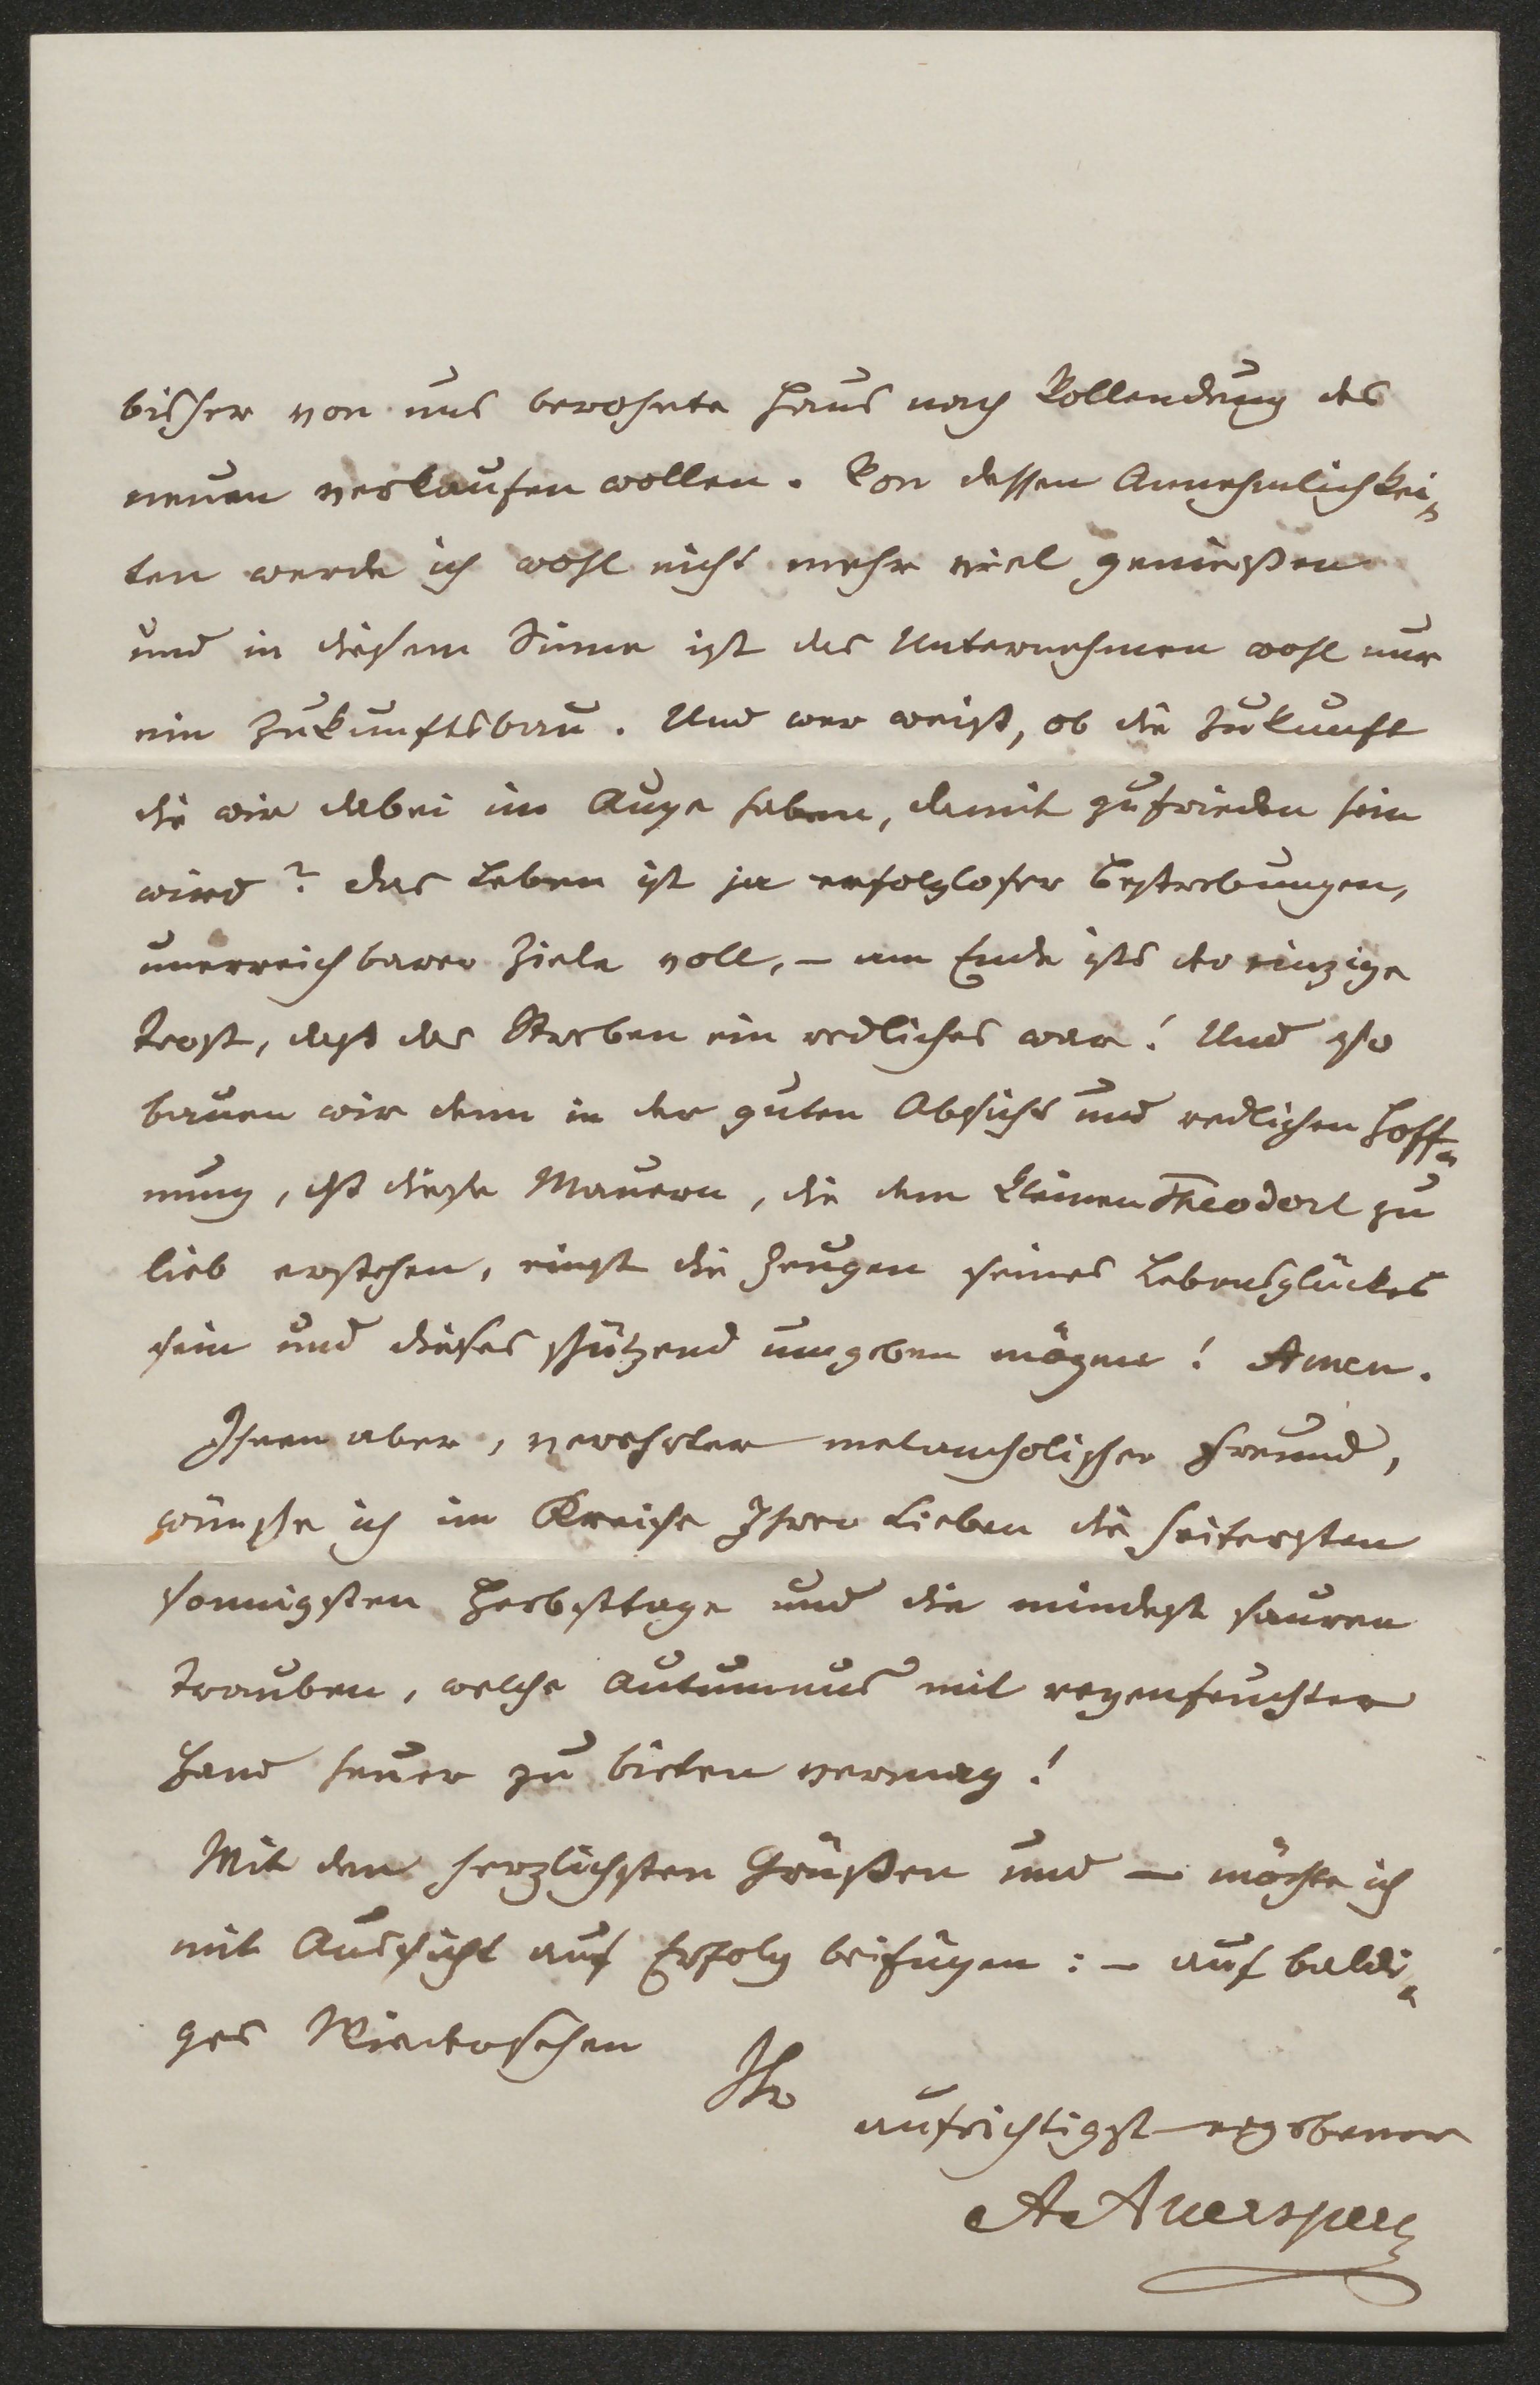 bisher von uns bewohnte Haus nach Vollendung des
neuen verkaufen wollen. Von dessen Annehmlichkei-
ten werde ich wohl nicht mehr viel genießen
und in diesem Sinne ist das Unternehmen wohl nur
ein Zukunftsbau. Und wer weiß, ob die Zukunft
die wir dabei im Auge haben, damit zufrieden sein
wird? Das Leben ist ja erfolgloser Bestrebungen,
unerreichbarer Ziele voll, – am Ende ists der einzige
Trost, daß das Streben ein redliches war! Und so
bauen wir denn in der guten Absicht und redlichen Hoff-
nung, daß diese Mauern, die dem kleinen Theodorl zu
lieb erstehen, einst die Zeugen seines Lebensglückes
sein und dieses schützend umgeben mögen! Amen.
Ihnen aber, verehrter melancholischer Freund,
wünsche ich im Kreise Ihrer Lieben die heitersten
sonnigsten Herbsttage und die mindest sauren
Trauben, welche Autumnus mit regenfeuchter
Hand heuer zu bieten vermag!
Mit den herzlichsten Grüßen und – möchte ich
mit Aussicht auf Erfolg beifügen: – auf baldi-
ges Wiedersehen
Ihr
aufrichtigst ergebener
A Auersperg